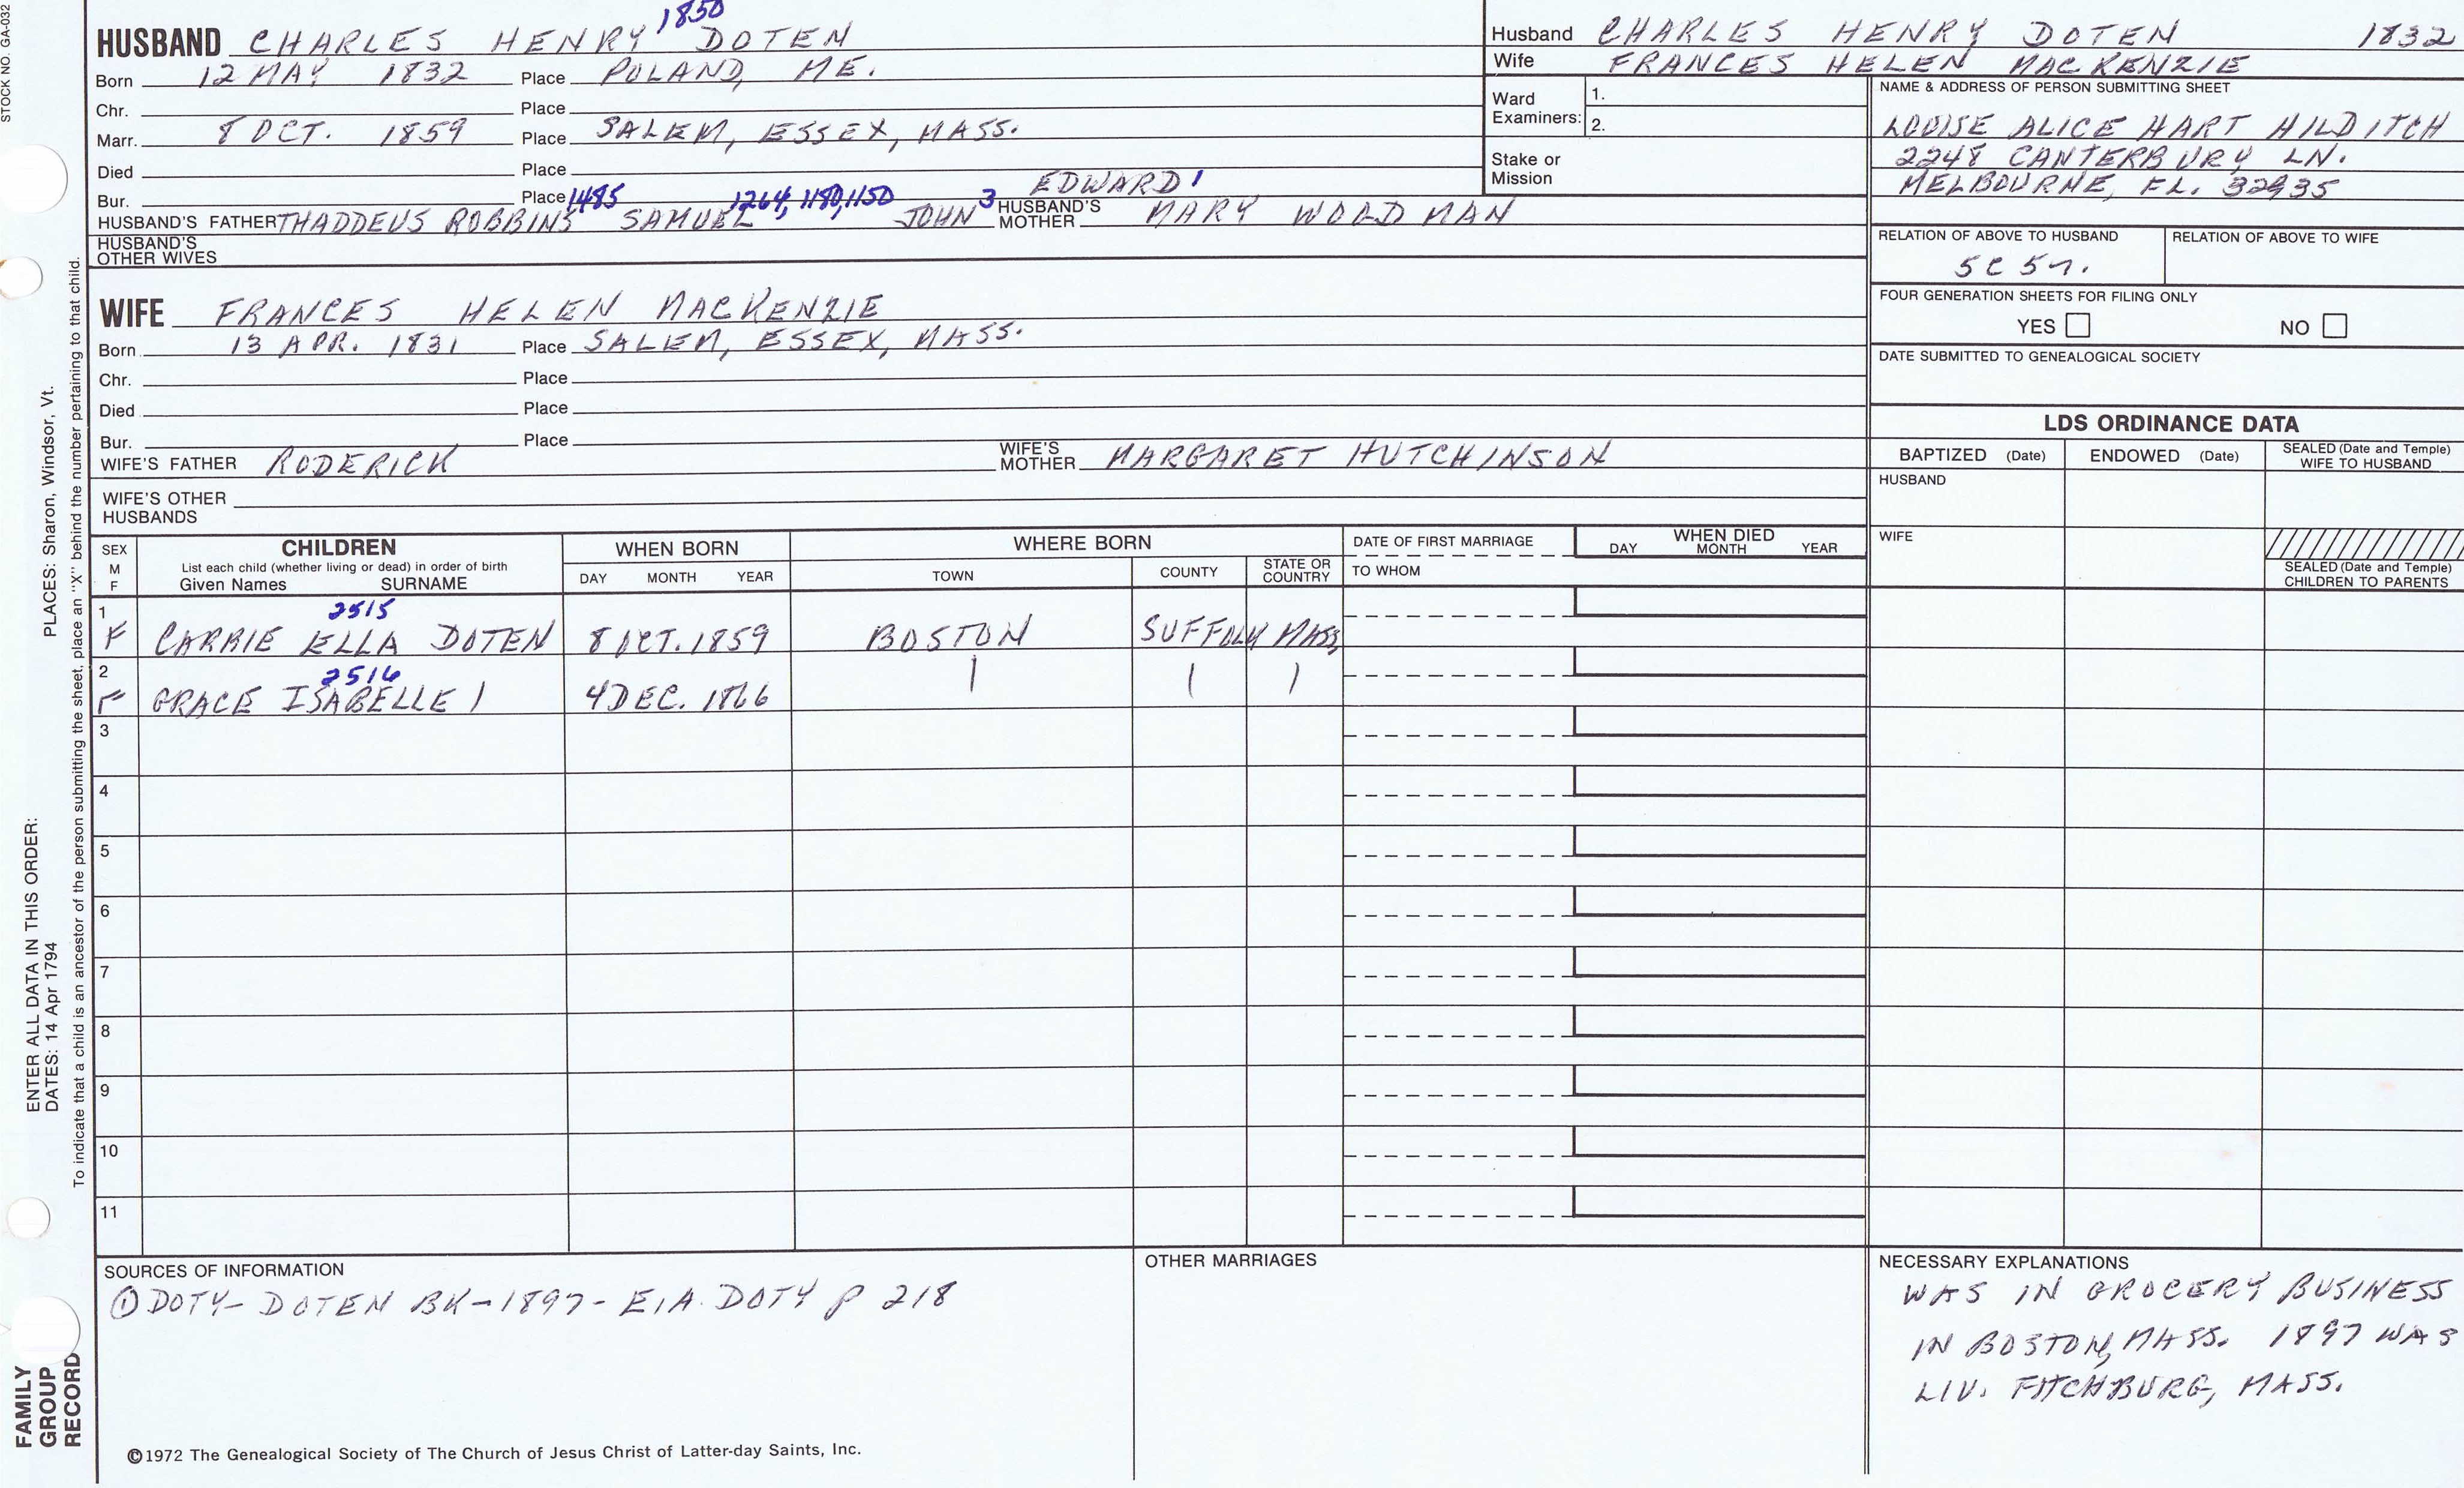 STOCK NO. GA-032
1850
HUSBAND CHARLES HENRY DOTEN
Born 12 MAY 1832 Place POLAND, ME.
Chr. Place
Marr. 8 OCT. 1859 Place SALEM, ESSEX, MASS.
Died Place
Bur. Place 1485 1264, 1180, 1150 EDWARD 1
HUSBAND'S FATHER THADDEUS ROBBINS SAMUEL JOHN 3 HUSBAND'S MOTHER MARY WOODMAN
HUSBAND'S OTHER WIVES
WIFE FRANCES HELEN MACKENZIE
Born 13 APR. 1831 Place SALEM, ESSEX, MASS.
Chr. Place
Died Place
Bur. Place
WIFE'S FATHER RODERICK WIFE'S MOTHER MARGARET HUTCHINSON
WIFE'S OTHER HUSBANDS
Husband CHARLES HENRY DOTEN 1832
Wife FRANCES HELEN MACKENZIE
Ward Examiners: 1.
2.
Stake or Mission
NAME & ADDRESS OF PERSON SUBMITTING SHEET
LOUISE ALICE HART HILDITCH
2248 CANTERBURY LN.
MELBOURNE, FL. 32935
RELATION OF ABOVE TO HUSBAND RELATION OF ABOVE TO WIFE
5C 5r.
FOUR GENERATION SHEETS FOR FILING ONLY
YES NO
DATE SUBMITTED TO GENEALOGICAL SOCIETY
LDS ORDINANCE DATA
BAPTIZED (Date) ENDOWED (Date) SEALED (Date and Temple) WIFE TO HUSBAND
HUSBAND
WIFE
SEALED (Date and Temple) CHILDREN TO PARENTS
SEX M F
CHILDREN
List each child (whether living or dead) in order of birth
Given Names SURNAME
WHEN BORN
DAY MONTH YEAR
WHERE BORN
TOWN COUNTY STATE OR COUNTRY
DATE OF FIRST MARRIAGE
TO WHOM
WHEN DIED
DAY MONTH YEAR
1 2515
F CARRIE ELLA DOTEN 8 OCT. 1859 BOSTON SUFFOLK MASS,
2 2516
F GRACE ISABELLE | 4 DEC. 1866 | | |
3
4
5
6
7
8
9
10
11
SOURCES OF INFORMATION
① DOTY-DOTEN BK-1897-E.A. DOTY p 218
OTHER MARRIAGES
NECESSARY EXPLANATIONS
WAS IN GROCERY BUSINESS
IN BOSTON, MASS. 1897 WAS
LIV. FITCHBURG, MASS.
©1972 The Genealogical Society of The Church of Jesus Christ of Latter-day Saints, Inc.
FAMILY
GROUP
RECORD
ENTER ALL DATA IN THIS ORDER:
DATES: 14 Apr 1794
PLACES: Sharon, Windsor, Vt.
To indicate that a child is an ancestor of the person submitting the sheet, place an "X" behind the number pertaining to that child.